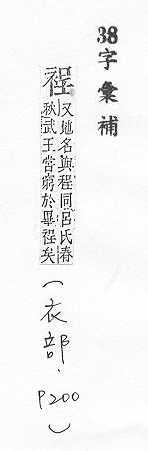 38字彙補
裎
又地名與程同呂氏春
秋武王嘗窮於畢裎矣
(衣部. P200)